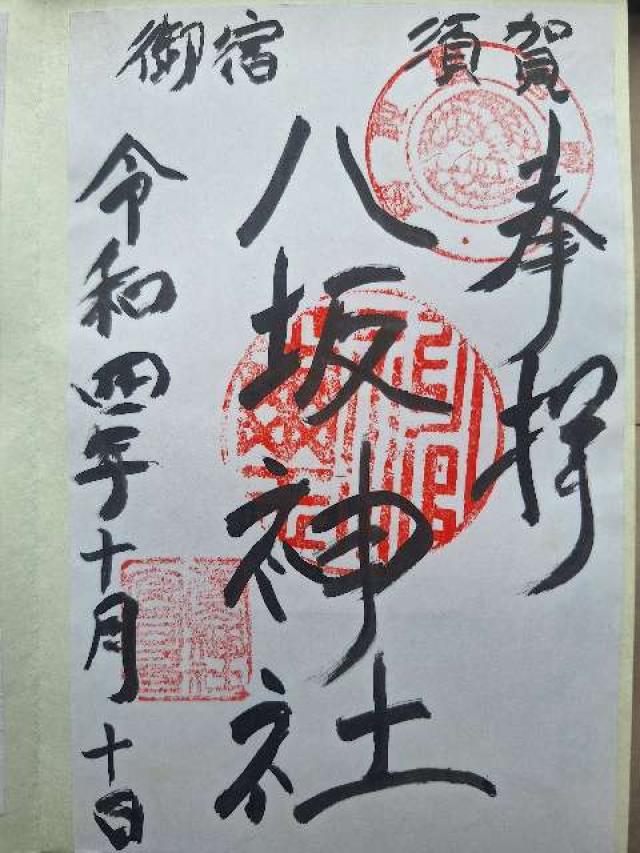 須賀
奉拝
八坂神社
御宿
令和四年十月十日